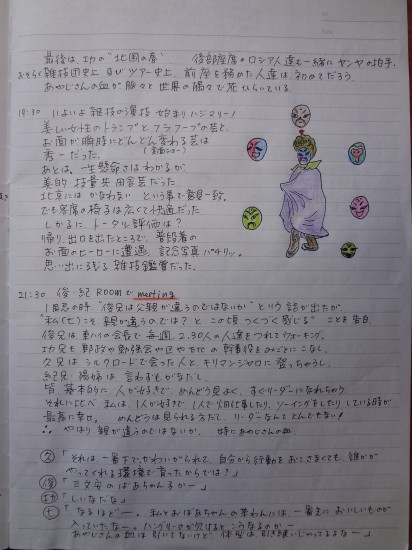 最後は、功の"北国の春" 後部座席のロシア人達も一緒にヤンヤの拍手。
おそらく雑技団史上 及びツアー史上、前座を務めた人達は、初めてだろう。
あやじさんの血が脈々と世界の隅々で花ひらいている。
19:30 いよいよ雑技の演技 始まりハジマリー!
美しい女性のトランプとフラフープの芸と、
お面が瞬時にどんどん変わる芸は
秀一だった。
あとは、一生懸命さはわかるが、
美的・技量共 田舎芸だった。
北京には かなわない という事で意見一致。
でも客席の椅子は広くて快適だった
しかるに、トータル評価は?
帰り、出口を出たところで、普段着の
お面のヒーローに遭遇、記念写真パチリッ。
思い出に残る雑技鑑賞だった。
21:30 俊・紀 ROOMで meeting
1日目の時、"俊兄は父親が違うのではないか"という話が出たが、
"私(七)こそ 親が違うのでは?と この頃 つくづく感じる" ことを告白。
俊兄は、東八の会長で 毎週、2.30人の人達をつれてウォーキング。
功兄も 町内や勉強会や
久兄は シルクロードで会った人と、キリマンジャロに 登っちゃうし、
紀兄 陽姉は 言わずもがなだし、
皆 基本的に 人が好きで、めんどう見よく、すぐリーダーになれちゃう
それに比べ 私は 1人が好きで、1人で畑仕事したり、ソーイングをしたりしている時が
最高に幸せ。 めんどうは見られる方だし、リーダーなんてとんでもない!
∴ やはり 親が違うのではないか、特にあやじさんの血
久「それは、一番下でかわいがられて、自分から行動をおこさなくても、誰かが
やってくれる環境で育ったからでは?」
俊「三文安のばあちゃん子かー」
功「しいなだな」
七「なるほどー。私とおばあちゃんの茶わんには、一番先においしいものが
入っていたなー。ハングリーさが欠けるとこうなるのかー
あやじさんの血は引いてないけど 体型は引き継いじゃってるよなー」